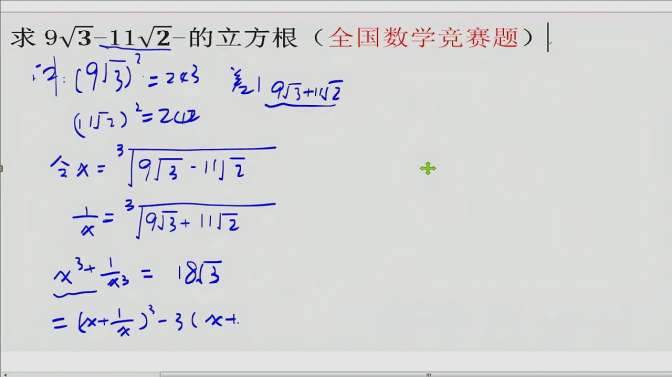 求 9√3-11√2-的立方根（全国数学竞赛题）
(9√3)²=243 差1 9√3+11√2
(11√2)²=242
令x=³√(9√3-11√2)
1/x=³√(9√3+11√2)
x³+1/x³=18√3
=(x+1/x)³-3(x+